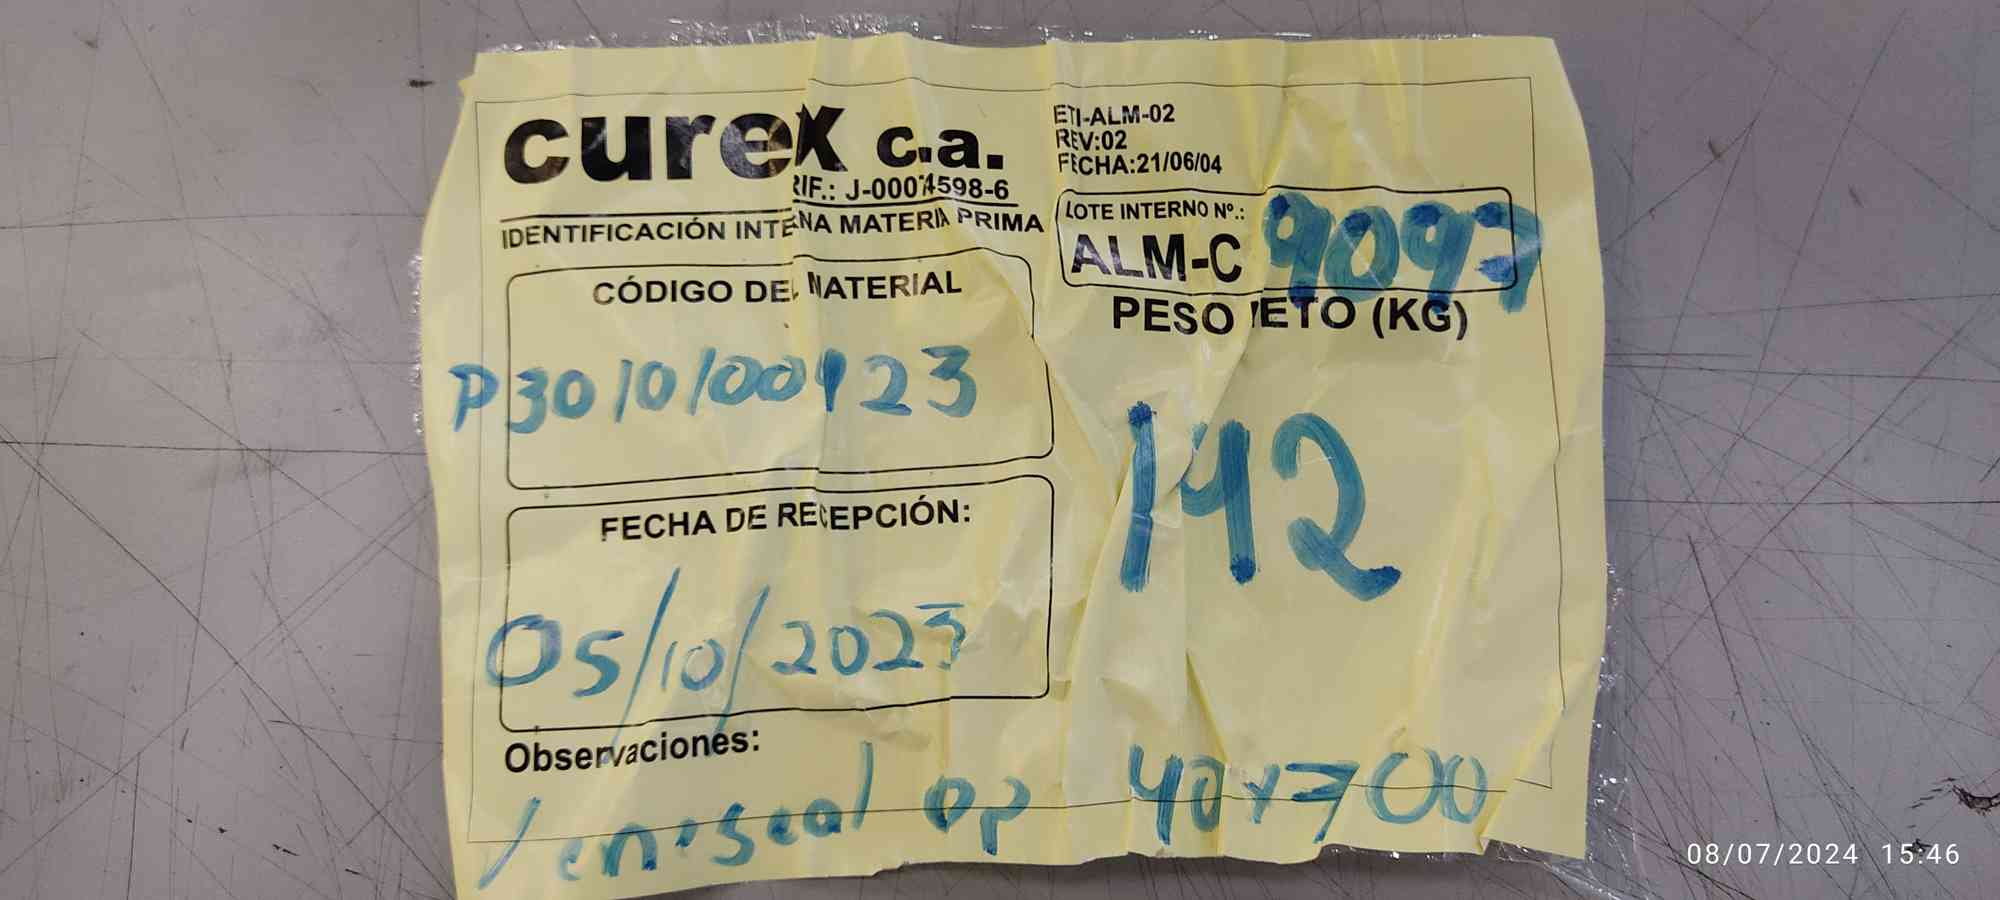 curex c.a.
RIF.: J-00074598-6
IDENTIFICACIÓN INTERNA MATERIA PRIMA
ETI-ALM-02
REV:02
FECHA:21/06/04
LOTE INTERNO Nº.:
ALM-C 9097
CÓDIGO DEL MATERIAL
P3010100923
PESO NETO (KG)
142
FECHA DE RECEPCIÓN:
05/10/2023
Observaciones:
Veniseal op 40x700
08/07/2024 15:46